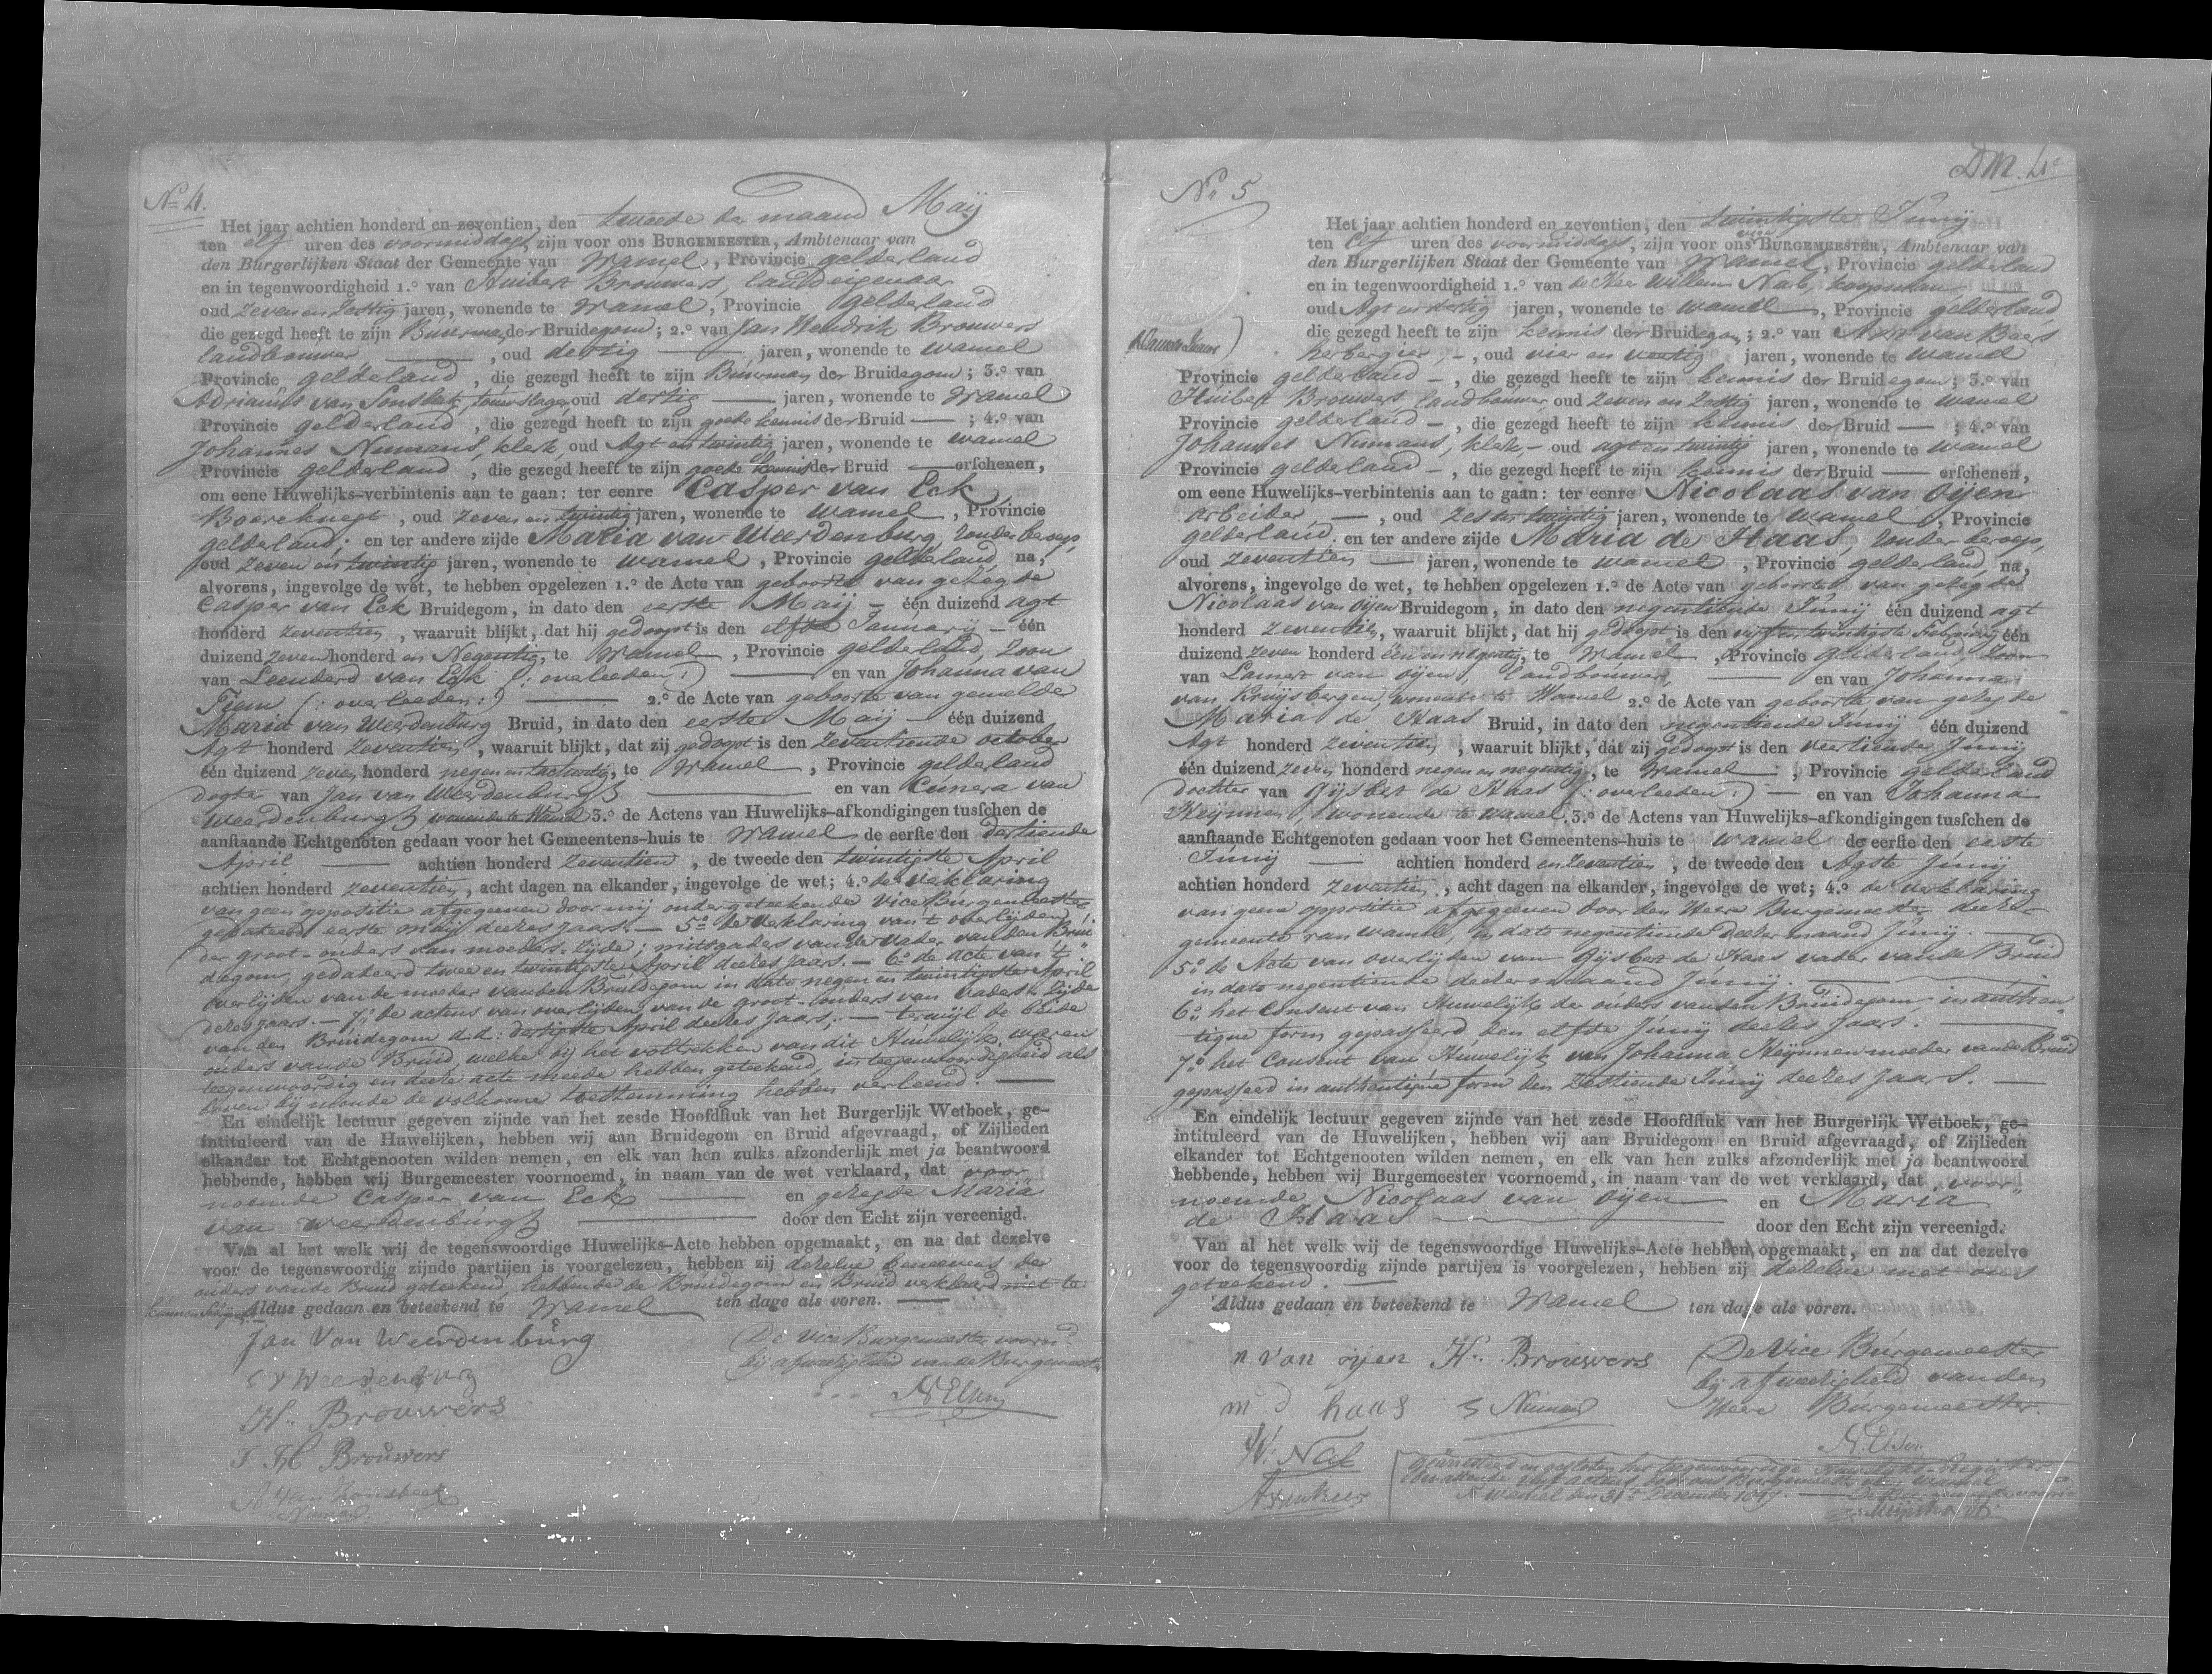 No 4.
Het jaar achtien honderd en zeventien, den tweede der maand Maij
ten elf uren des voormiddags, zijn voor ons BURGEMEESTER, Ambtenaar van
den Burgerlijken Staat der Gemeente van Wamel, Provincie gelderland
en in tegenwoordigheid 1.o van Huibert Brouwers, landeigenaar
oud zeven en zestig jaren, wonende te Wamel, Provincie gelderland
die gezegd heeft te zijn Buurman der Bruidegom; 2.o van Jan Hendrik Brouwers
landbouwer, oud dertig jaren, wonende te wamel
Provincie gelderland, die gezegd heeft te zijn Buurman der Bruidegom; 3.o van
Adrianus van oud dertig jaren, wonende te Wamel
Provincie gelderland, die gezegd heeft te zijn goede kennis der Bruid ; 4.o van
Johannes Numans, klerk, oud Agt en twintig jaren, wonende te wamel
Provincie gelderland, die gezegd heeft te zijn goede kennis der Bruid erschenen,
om eene Huwelijks-verbintenis aan te gaan: ter eenre Casper van Eck
Boereknegt, oud zeven en twintig jaren, wonende te wamel, Provincie
gelderland; en ter andere zijde Maria van Weerdenburg, zonder beroep,
oud zeven en twintig jaren, wonende te wamel, Provincie gelderland, na,
alvorens, ingevolge de wet, te hebben opgelezen 1.o de Acte van geboorte van gezegde
Casper van Eck Bruidegom, in dato den eerste Maij één duizend agt
honderd zeventien, waaruit blijkt, dat hij gedoopt is den elfde Januarij één
duizend zeven honderd en Negentig, te Wamel, Provincie gelderland, Zoon
van Leenderd van Eck (: overleeden :) en van Johanna van
(: overleeden :) 2.o de Acte van geboorte van gemelde
Maria van Weerdenburg Bruid, in dato den eerste Maij één duizend
Agt honderd zeventien, waaruit blijkt, dat zij gedoopt is den zeventiende october
één duizend zeven honderd negen en tachentig, te Wamel, Provincie gelderland
dogter van Jan van Weerdenburg en van Cunera van
Weerdenburg wonende te Wamel 3.o de Actens van Huwelijks-afkondigingen tusschen de
aanstaande Echtgenoten gedaan voor het Gemeentens-huis te Wamel de eerste den dertiende
April achtien honderd zeventien, de tweede den twintigste April
achtien honderd zeventien, acht dagen na elkander, ingevolge de wet; 4.o de verklaring
van geen oppositie afgegeeven door mij ondergeteekende Vice Burgemeester
gedateerd eerste maij deezes jaars. — 5o de verklaring van 't overlijden
der groot-ouders van moeders zijde; mitsgaders van de vader van den Brui-
degom, gedateerd twee en twintigste April deezes jaars. — 6o de acte van 't
overlijden van de moeder van den Bruidegom in dato negen en twintigste April
dezes jaars — 7o de actens van overlijden van de groot-ouders van vaders zijde
van den Bruidegom d.d: dertigste April deezes jaars; — terwijl de beide
ouders van de Bruid, welke bij het voltrekken van dit Huwelijk waren
tegenwoordig en deeze acte meede hebben geteekend, in tegenwoordigheid als
boven bij monde de volkomen toestemming hebben verleend.
En eindelijk lectuur gegeven zijnde van het zesde Hoofdstuk van het Burgerlijk Wetboek, ge-
intituleerd van de Huwelijken, hebben wij aan Bruidegom en Bruid afgevraagd, of Zijlieden
elkander tot Echtgenooten wilden nemen, en elk van hen zulks afzonderlijk met ja beantwoord
hebbende, hebben wij Burgemeester voornoemd, in naam van de wet verklaard, dat voor
noemde Casper van Eck en gezegde Maria
van Weerdenburg door den Echt zijn vereenigd.
Van al het welk wij de tegenswoordige Huwelijks-Acte hebben opgemaakt, en na dat dezelve
voor de tegenswoordig zijnde partijen is voorgelezen, hebben zij dezelve beneevens der
ouders van de Bruid geteekend, hebbende de Bruidegom en Bruid verklaard niet te
kunnen
Aldus gedaan en beteekend te Wamel ten dage als voren.
Jan Van Weerdenburg
De Vice Burgemeester voornd.
bij afwezigheid van de Burgemeester
c v Weerdenburg
H. Brouwers
J H Brouwers
DM. 4
No 5
Het jaar achtien honderd en zeventien, den twintigste Junij
ten elf uren des voormiddags, zijn voor ons vice BURGEMEESTER, Ambtenaar van
den Burgerlijken Staat der Gemeente van Wamel, Provincie gelderland
en in tegenwoordigheid 1.o van de Heer Willem Nab, koopman
oud Agt en dertig jaren, wonende te wamel, Provincie gelderland,
die gezegd heeft te zijn kennis der Bruidegom; 2.o van
herbergier, oud vier en veertig jaren, wonende te wamel
Provincie gelderland, die gezegd heeft te zijn kennis der Bruidegom; 3.o van
Huibert Brouwers, landbouwer, oud zeven en zestig jaren, wonende te wamel
Provincie gelderland, die gezegd heeft te zijn kennis der Bruid ; 4.o van
Johannes Numans, klerk, oud agt en twintig jaren, wonende te wamel
Provincie gelderland, die gezegd heeft te zijn kennis der Bruid erschenen,
om eene Huwelijks-verbintenis aan te gaan: ter eenre Nicolaas van Oijen
arbeider, oud zes en twintig jaren, wonende te wamel, Provincie
gelderland, en ter andere zijde Maria de Haas, zonder beroep,
oud zeventien jaren, wonende te wamel, Provincie gelderland, na,
alvorens, ingevolge de wet, te hebben opgelezen 1.o de Acte van geboorte van gezegde
Nicolaas van Oijen Bruidegom, in dato den negentiende Junij één duizend agt
honderd zeventien, waaruit blijkt, dat hij gedoopt is den vijf en twintigste Februarij één
duizend zeven honderd een en negentig, te Wamel, Provincie gelderland, Zoon
van Lamert van Oijen, landbouwer, en van Johanna
van Kruijsbergen, wonende te Wamel 2.o de Acte van geboorte van gezegde
Maria de Haas Bruid, in dato den negentiende Junij één duizend
Agt honderd zeventien, waaruit blijkt, dat zij gedoopt is den veertiende Junij
één duizend zeven honderd negen en negentig, te Wamel, Provincie gelderland
dochter van Gijsbert de Haas (: overleeden :) en van Johanna
Heijnnen, wonende te wamel, 3.o de Actens van Huwelijks-afkondigingen tusschen de
aanstaande Echtgenoten gedaan voor het Gemeentens-huis te wamel de eerste den eerste
Junij achtien honderd en zeventien, de tweede den Agste Junij
achtien honderd zeventien, acht dagen na elkander, ingevolge de wet; 4.o de verklaring
van geene oppositie afgegeeven door den Heere Burgemeester deezer
gemeente van wamel, in dato negentiende deezer maand Junij.
5o de Acte van overlijden van Gijsbert de Haas vader van de Bruid
in dato negentiende deezer maand Junij.
6o het Consent van Huwelijk der ouders van den Bruidegom in authen-
tique form gepasseerd den elfde Junij deezes Jaars.
7o het Consent van Huwelijk van Johanna Heijnnen moeder van de Bruid
gepasseerd in authentique form den zestiende Junij deezes Jaars.
En eindelijk lectuur gegeven zijnde van het zesde Hoofdstuk van het Burgerlijk Wetboek, ge-
intituleerd van de Huwelijken, hebben wij aan Bruidegom en Bruid afgevraagd, of Zijlieden
elkander tot Echtgenooten wilden nemen, en elk van hen zulks afzonderlijk met ja beantwoord
hebbende, hebben wij Burgemeester voornoemd, in naam van de wet verklaard, dat voor
noemde Nicolaas van Oijen en Maria
de Haas door den Echt zijn vereenigd.
Van al het welk wij de tegenswoordige Huwelijks-Acte hebben opgemaakt, en na dat dezelve
voor de tegenswoordig zijnde partijen is voorgelezen, hebben zij dezelve met ons
geteekend.
Aldus gedaan en beteekend te Wamel ten dage als voren.
n van oijen H. Brouwers
De Vice Burgemeester
bij afwezigheid van den
Heere Burgemeester.
m d haas
W. Nab
Wamel den 31e December 1817.